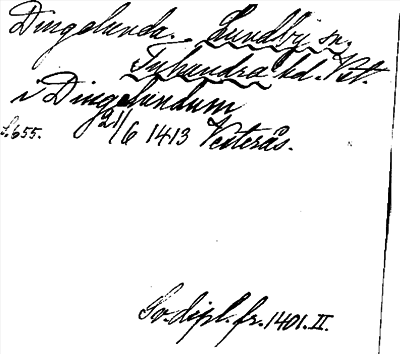 Dingelunda. Lundby sn.
Tuhundra hd. Vstm.
i Dingelundum
s. 655. 21/6 1413 Vesterås.
Sv. dipl. fr. 1401. II.